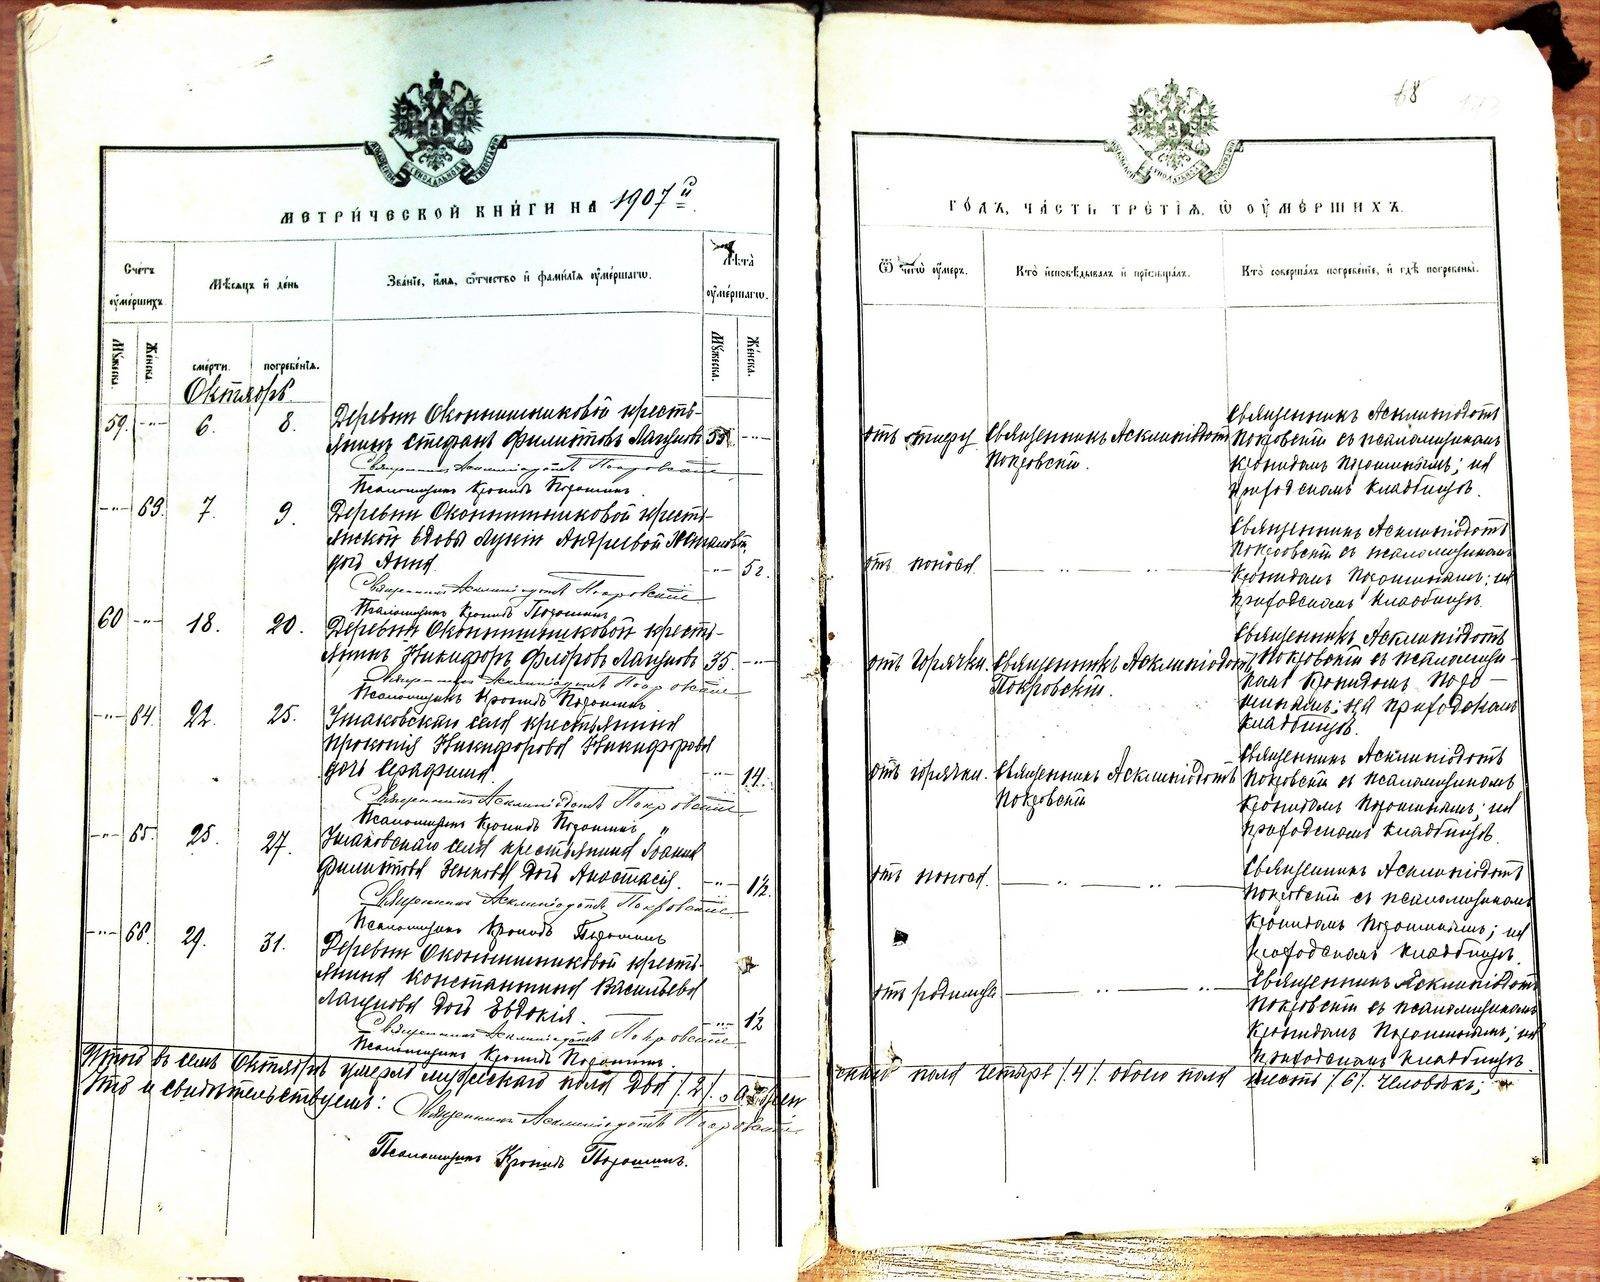 МЕТРИЧЕСКОЙ КНИГИ НА 1907й
Счетъ оумершихъ.
Мѣсяцъ и день
Званіе, имя, отчество и фамиліа оумершагω.
Лѣта оумершагω.
Мужеска.
Женска.
смерти.
погребеніа.
Мужеска.
Женска.
Октябрь
59. -"- 6. 8. Деревни Оконишниковой кресть-
янинъ Стефанъ Филиповъ Лагуновъ 55 -"-
Священникъ Асклипіодотъ Покровскій
Псаломщикъ Кронидъ Порошин.
-"- 63. 7. 9. Деревни Оконишниковой кресть-
янской вдовы Андреевой
дочь Анна -"-
Священникъ Асклипіодотъ Покровскій
Псаломщикъ Кронидъ Порошин
60 -"- 18. 20. Деревни Оконишниковой кресть-
янинъ Никифоръ Флоровъ Лагуновъ 35. -"-
Священникъ Асклипіодотъ Покровскій
Псаломщикъ Кронидъ Порошин.
-"- 64. 22. 25. Ушаковскаго села крестьянина
Прокопія Никифорова Никифорова
дочь Серафима. -"- 14.
Священникъ Асклипіодотъ Покровскій
Псаломщикъ Кронидъ Порошин
-"- 65. 25. 27. Ушаковскаго села крестьянина Іоанна
дочь Анастасія. -"- 1½.
Священникъ Асклипіодотъ Покровскій
Псаломщикъ Кронидъ Порошин
-"- 66. 29. 31. Деревни Оконишниковой кресть-
янина Константина Васильева
Лагунова дочь Евдокія. -"-
Священникъ Асклипіодотъ Покровскій
Псаломщикъ Кронидъ Порошин.
Итого въ семъ Октябрѣ умерло мужескаго пола два /2/, а жен
Что и свидѣтельствуемъ:
Священникъ Асклипіодотъ Покровскій
Псаломщикъ Кронидъ Порошин.
68
ГОДЪ, ЧАСТЬ ТРЕТІА, Ѿ ОУМЕРШИХЪ.
Ѿ чегω оумеръ.
Кто исповѣдывалъ и пріобщалъ.
Кто совершалъ погребеніе, и гдѣ погребены.
отъ тифу Священникъ Асклипіодотъ
Покровскій.
Священникъ Асклипіодотъ
Покровскій съ псаломщикомъ
Кронидомъ Порошинымъ; на
приходскомъ кладбищѣ.
отъ поноса — " — " —
Священникъ Асклипіодотъ
Покровскій съ псаломщикомъ
Кронидомъ Порошинымъ; на
приходскомъ кладбищѣ.
отъ горячки. Священникъ Асклипіодотъ
Покровскій.
Священникъ Асклипіодотъ
Покровскій съ псаломщи-
комъ Кронидомъ Поро-
шинымъ; на приходскомъ
кладбищѣ.
отъ горячки. Священникъ Асклипіодотъ
Покровскій
Священникъ Асклипіодотъ
Покровскій съ псаломщикомъ
Кронидомъ Порошинымъ; на
приходскомъ кладбищѣ.
отъ поноса. — " — " —
Священникъ Асклипіодотъ
Покровскій съ псаломщикомъ
Кронидомъ Порошинымъ; на
приходскомъ кладбищѣ.
отъ родимца — " — " —
Священникъ Асклипіодотъ
Покровскій съ псаломщикомъ
Кронидомъ Порошинымъ, на
приходскомъ кладбищѣ.
скаго пола четыре /4/. обоего пола шесть /6/ человѣкъ;